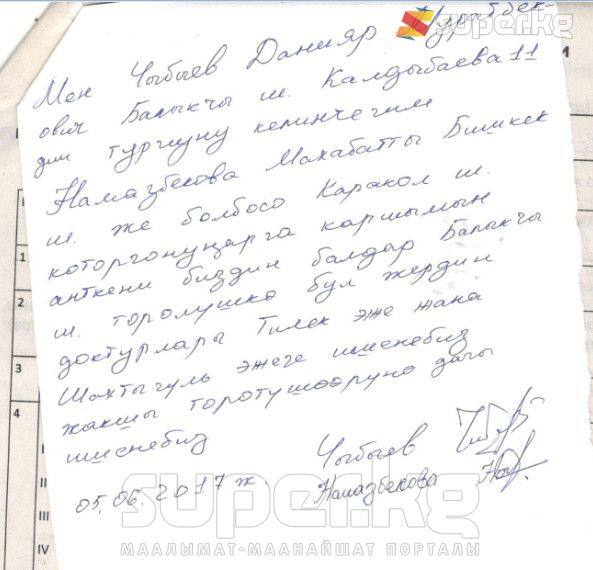 super.kg
Мен Чыбыев Данияр
ович Балыкчы ш. Калдыбаева 11
дин тургуну келинчегим
Намазбекова Махабатты Бишкек
ш. же болбосо Каракол ш.
которгонуңарга каршымын
анткени биздин балдар Балыкчы
ш. торолушко бул жердин
доктурлары Тилек эже жана
Шахтыгуль эжеге ишенебиз
жакшы торотушооруно дагы
ишенебиз
05.06.2017 ж.
Чыбыев
Намазбекова
super.kg
МААЛЫМАТ-МААНАЙШАТ ПОРТАЛЫ
1
2
3
4
I
II
III
IV